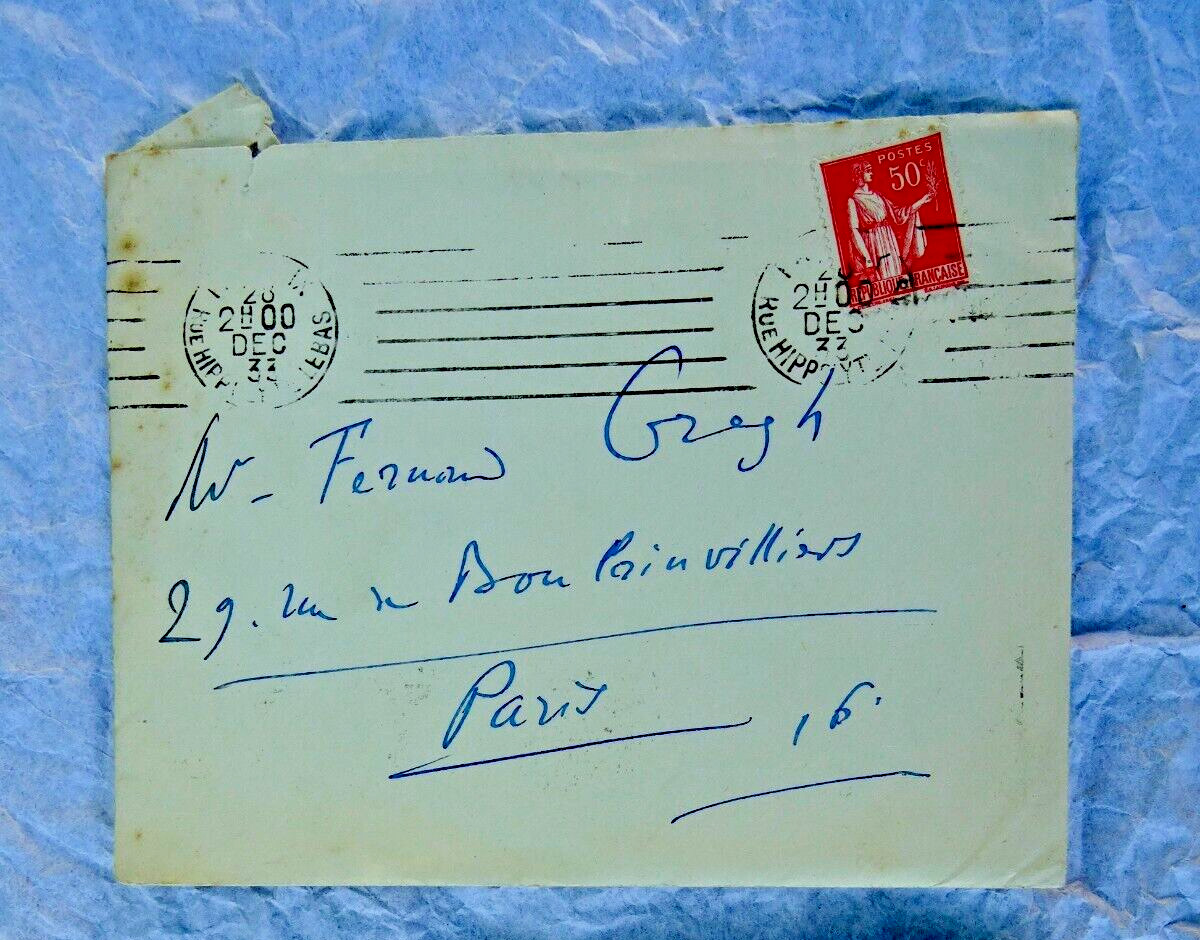 POSTES
50c
RÉPUBLIQUE FRANÇAISE
2H00
DEC
33
RUE HIPP LEBAS
2H00
DEC
33
RUE HIPP
Mr - Fernand Gregh
29. rue de Boulainvilliers
Paris 16.